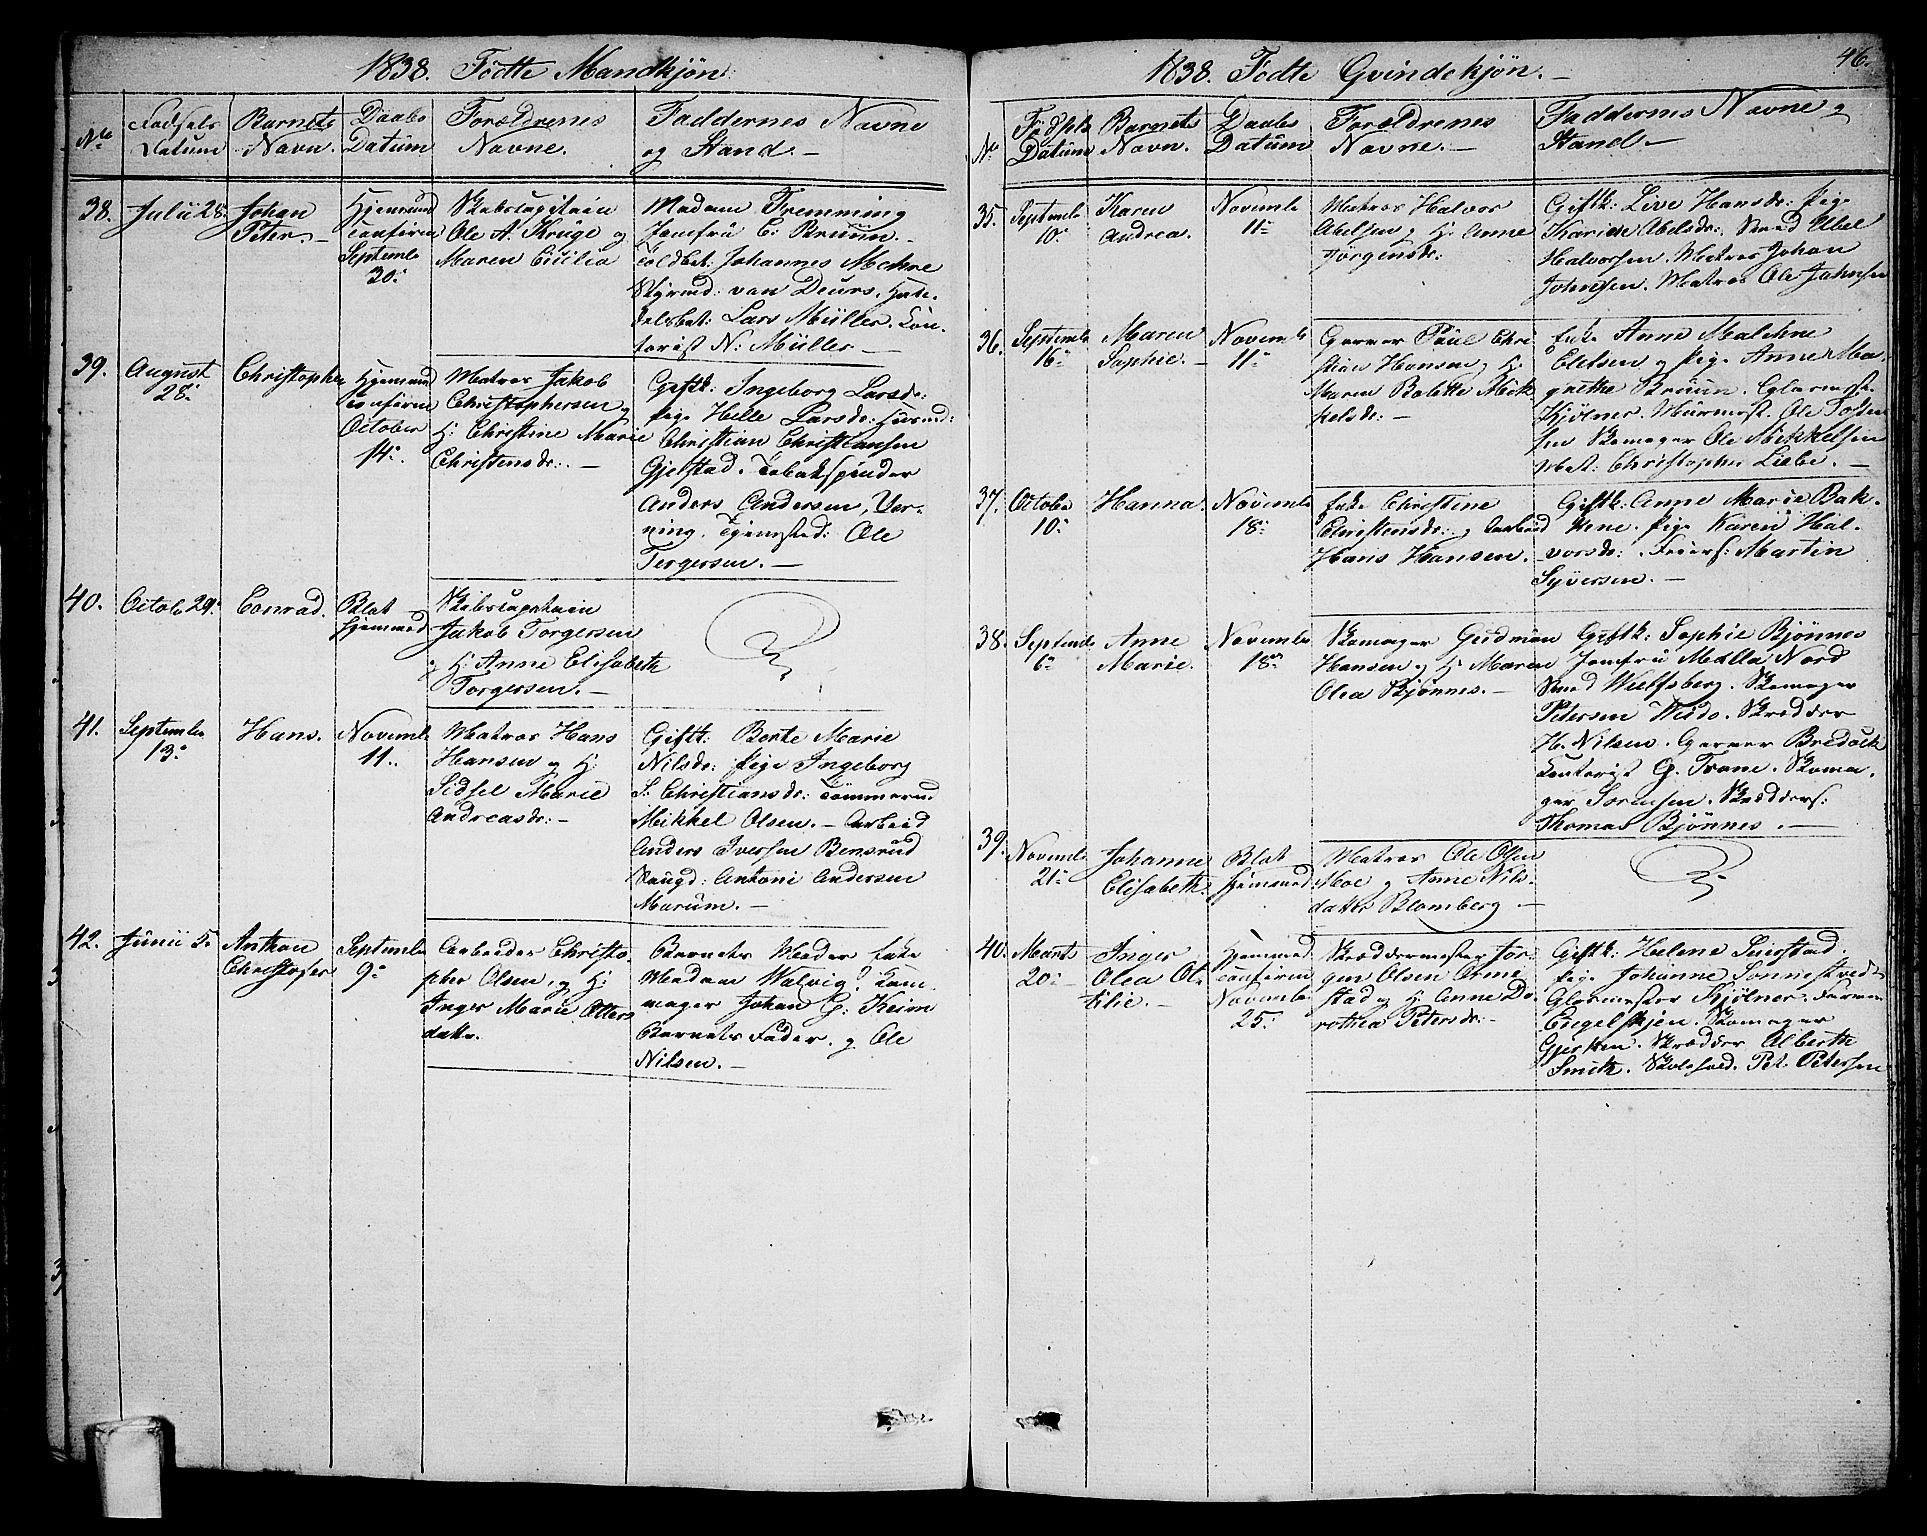 1838. Födte Mandkjön:
No
Födsels Datum
Barnets Navn.
Daabs Datum
Forældrenes Navne.
Faddernes Navne og Stand. —
38.
Julii 28:
Johan
Peter. —
Hjemmed
confirm
Septembr
30:
Skibscapitain
Ole A. Kruge og
Maren Cicilia
Madam Fremming
Jomfru C. Bruun. —
Toldbet: Johannes
Styrmd: van Deurs. Han-
delsbet: Lars Müller. Con-
torist N: Müller —
39.
August
28:
Christopher
Hjemmed
confirm
October
14:.
Matros Jakob
Christophersen og
H: Christine Marie
Christensdr: —
Giftk: Ingeborg Larsdr:
Pige Helle Larsdr:
Christian Christiansen
Gjelstad. Tobakspinder
Anders Andersen,
Ole
Tergersen. —
40.
Octob: 29:
Conrad.
Blot
hjemmed
Skibscapitain
Jakob Torgersen
og H: Anne Elisabeth
Torgersen. —
41.
Septembr
13:
Hans.
Novembr
11..
Matros Hans
Hansen og H:
Sidsel Marie
Andreasdr: —
Giftk: Borte Marie
Nilsdr: Pige Ingeborg
S: Christiansdr: Tömmermd
Mikkel Olsen. — Arbeid
Anders Iversen Bensrud
Ungd: Antoni Andersen
Marum. —
42.
Junii 5.
Anthon
Christofer
Septembr
9:
Arbeider Christo-
pher Olsen, og H:
Inger Marie Otters
datter.
Barnets Moder Enke
Madam Walvig? Kam-
mager Johan G: Keim
Barnets Fader. og Ole
Nilsen. —
1838. Födte Qvindekjön. —
46.
No
Födsels Datum
Barnets Navn.
Daabs Datum
Forældrenes Navne. —
Faddernes Navne og Stand —
35.
Septembr
10:
Karen
Andrea.
Novembr
11:
Matros Halvor
Abelsen og H: Anne
Jörgensdr:
Giftk: Live Hansdr: Pige
Karine Abelsdr: Smed Abel
Halvorsen. Matros Johan
Johnsen. Matros Ole Johnsen
36.
Septembr
16:
Maren
Sophie. —
Novembr
11:
Garver Paul Chri
stian Hansen og H:
Maren Bolette Mik
kelsdr: —
Enke Anne Malene
Eletsen og Pige Anne Ma-
grethe Bruun. Glarmest.
Kjölner. Murmest. Ole
Skomager Ole Mikkelsen
Mat: Christopher Liebe. —
37.
October
10:
Hanna.
Novembr
18:
Enke Christine
Christensdr: og Arbeid
Hans Hansen. —
Giftk: Anne Marie Bak-
kene. Pige Karen Hal-
vorsdr: Feiers: Martin
Syversen. —
38.
Septembr
6:
Anne
Marie.
Novembr
18:
Skomager Gudmun
Hansen og H: Maren
Olea Bjönnes. —
Giftk: Sophie Bjönnes
Jomfru Malla Nord
Smed Wulfsberg. Skomager
Petersen Skrædder
H. Nilsen. Garver Bredock
Contorist G. Trane. Skoma-
ger Sörensen. Skrædders:
Thomas Bjönnes. —
39.
Novembr
21:
Johanne
Elisabeth.
Blot
hjemmed
Matros Ole Olsen
Moe og Anne Nils-
datter Blomberg —
40.
Marts
20:
Inger
Olea Ot-
tilie. —
Hjemmed
confirm
Novembr
25:
Skræddermester Jör-
gen Olsen Orme
stad og H: Anne Do-
rothea Petersdr: —
Giftk: Helene Snustad
Pige Johanne Sönnestvedt
Glarmester Kjölner. Farver
Engelskjen. Skomager
Gjersen. Skrædder Alberth
Smith. Pet. Petersen